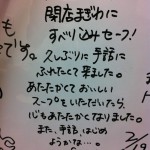 閉店まぎわに
すべり込みセーフ!
久しぶりに手話に
ふれたくて来ました。
あたたかくておいしい
スープをいただいたら、
心もあたたかくなりました。
また、手話、はじめ
ようかな…。
2/19